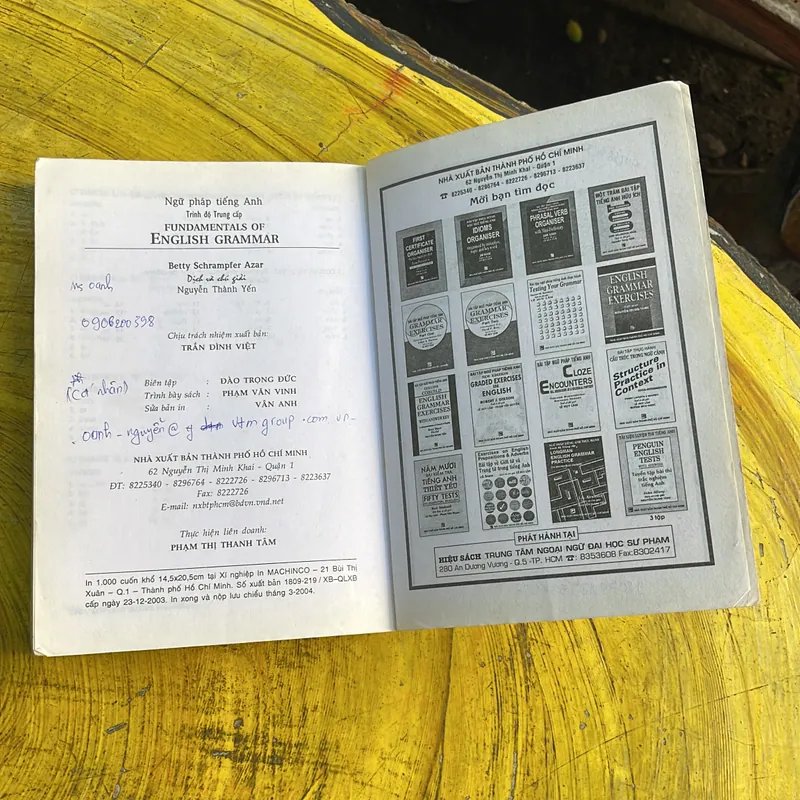 Ngữ pháp tiếng Anh
Trình độ Trung cấp
FUNDAMENTALS OF
ENGLISH GRAMMAR
Betty Schrampfer Azar
Dịch và chú giải
Nguyễn Thành Yến
Ms oanh
0906200398
Chịu trách nhiệm xuất bản:
TRẦN ĐÌNH VIỆT
(cá nhân)
Biên tập : ĐÀO TRỌNG ĐỨC
Trình bày sách : PHẠM VĂN VINH
Sửa bản in : VÂN ANH
oanh-nguyễn@ vtmgroup.com.vn
NHÀ XUẤT BẢN THÀNH PHỐ HỒ CHÍ MINH
62 Nguyễn Thị Minh Khai - Quận 1
ĐT: 8225340 - 8296764 - 8222726 - 8296713 - 8223637
Fax: 8222726
E-mail: nxbtphcm@bdvn.vnd.net
Thực hiện liên doanh:
PHẠM THỊ THANH TÂM
In 1.000 cuốn khổ 14,5x20,5cm tại Xí nghiệp In MACHINCO – 21 Bùi Thị
Xuân – Q.1 – Thành phố Hồ Chí Minh. Số xuất bản 1809-219 / XB-QLXB
cấp ngày 23-12-2003. In xong và nộp lưu chiểu tháng 3-2004.
NHÀ XUẤT BẢN THÀNH PHỐ HỒ CHÍ MINH
62 Nguyễn Thị Minh Khai - Quận 1
☎ 8225340 - 8296764 - 8222726 - 8296713 - 8223637
Mời bạn tìm đọc
FIRST
CERTIFICATE
ORGANISER
IDIOMS
ORGANISER
PHRASAL VERB
ORGANISER
MỘT TRĂM BÀI TẬP
TIẾNG ANH HỮU ÍCH
100
GRAMMAR
EXERCISES
Part One
GRAMMAR
EXERCISES
Part Two
Testing Your Grammar
ENGLISH
GRAMMAR
EXERCISES
ENGLISH
GRAMMAR
EXERCISES
BÀI TẬP NGỮ PHÁP TIẾNG ANH
GRADED EXERCISES
IN
ENGLISH
BÀI TẬP NGỮ PHÁP TIẾNG ANH
CLOZE
ENCOUNTERS
BÀI TẬP THỰC HÀNH
CẤU TRÚC TRONG NGỮ CẢNH
Structure
Practice in
Context
NĂM MƯƠI
BÀI KIỂM TRA
TIẾNG ANH
THIẾT YẾU
FIFTY TESTS
Exercises on English
Prepositions & Adverbs
Bài tập về Giới từ và
Trạng từ trong tiếng Anh
LONGMAN
ENGLISH GRAMMAR
PRACTICE
TÀI LIỆU LUYỆN THI TIẾNG ANH
PENGUIN
ENGLISH
TESTS
Tuyển tập bài thi
trắc nghiệm
tiếng Anh
3 tập
PHÁT HÀNH TẠI
HIỆU SÁCH TRUNG TÂM NGOẠI NGỮ ĐẠI HỌC SƯ PHẠM
280 An Dương Vương - Q.5 -TP. HCM ☎: 8353608 Fax:8302417